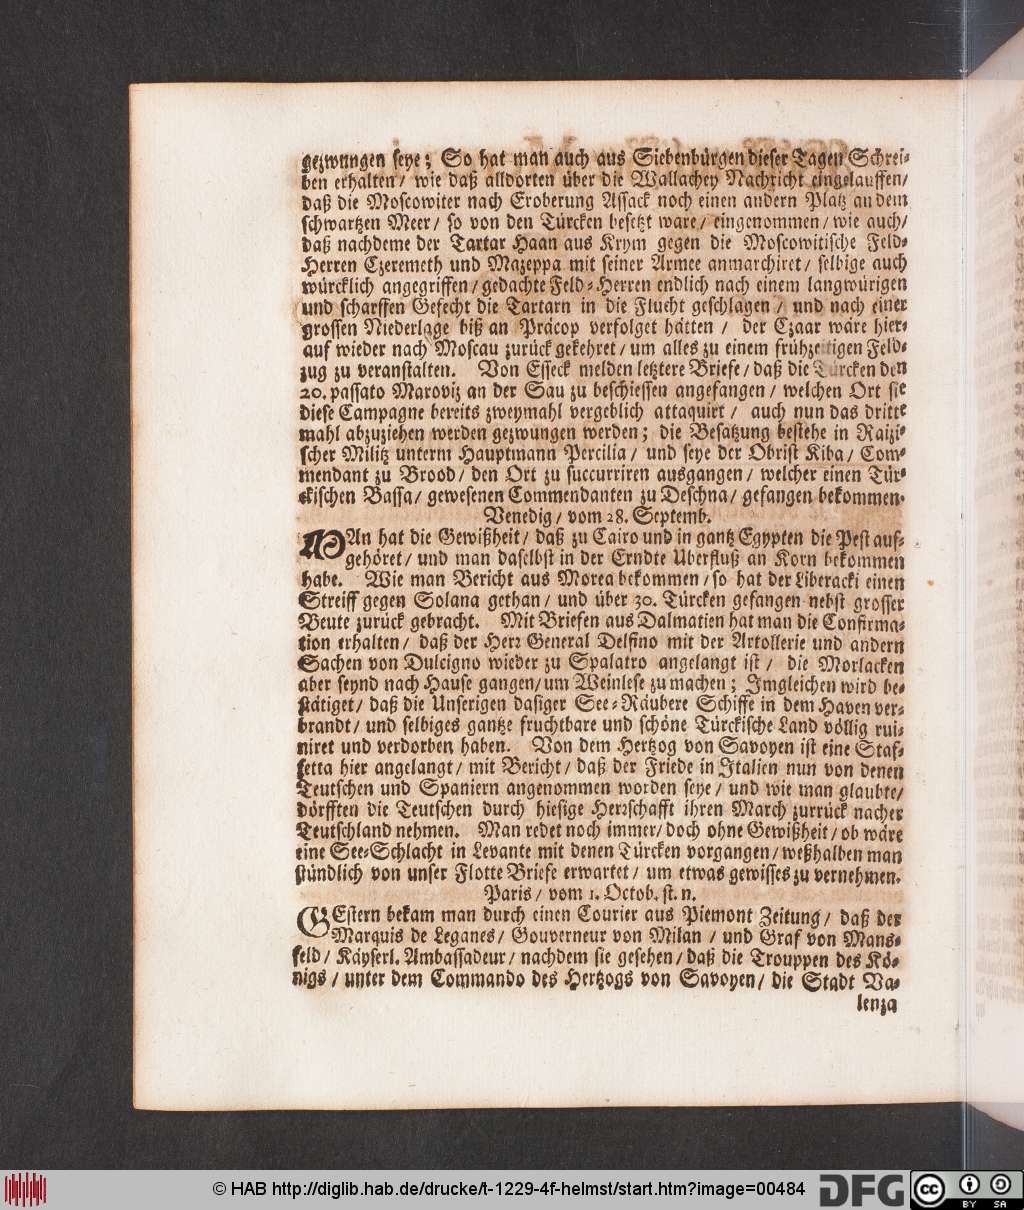 gezwungen seye; So hat man auch aus Siebenbürgen dieser Tagen Schrei-
ben erhalten/ wie daß alldorten über die Wallachey Nachricht eingelauffen/
daß die Moscowiter nach Eroberung Assack noch einen andern Platz an dem
schwartzen Meer/ so von den Türcken besetzt ware/ eingenommen/ wie auch/
daß nachdeme der Tartar Haan aus Krym gegen die Moscowitische Feld-
Herren Czeremeth und Mazeppa mit seiner Armee anmarchiret/ selbige auch
würcklich angegriffen/ gedachte Feld-Herren endlich nach einem langwürigen
und scharffen Gefecht die Tartarn in die Flucht geschlagen/ und nach einer
grossen Niederlage biß an Präcop verfolget hätten/ der Czaar wäre hier-
auf wieder nach Moscau zurück gekehret/ um alles zu einem frühzeitigen Feld-
zug zu veranstalten. Von Esseck melden letztere Briefe/ daß die Türcken den
20. passato Maroviz an der Sau zu beschiessen angefangen/ welchen Ort sie
diese Campagne bereits zweymahl vergeblich attaquirt/ auch nun das dritte
mahl abzuziehen werden gezwungen werden; die Besatzung bestehe in Raizi-
scher Militz unterm Hauptmann Percilia/ und seye der Obrist Kiba/ Com-
mendant zu Brood/ den Ort zu succurriren ausgangen/ welcher einen Tür-
ckischen Bassa/ gewesenen Commendanten zu Deschna/ gefangen bekommen.
Venedig/ vom 28. Septemb.
MAn hat die Gewißheit/ daß zu Cairo und in gantz Egypten die Pest auf-
gehöret/ und man daselbst in der Erndte Uberfluß an Korn bekommen
habe. Wie man Bericht aus Morea bekommen/ so hat der Liberacki einen
Streiff gegen Solana gethan/ und über 30. Türcken gefangen nebst grosser
Beute zurück gebracht. Mit Briefen aus Dalmatien hat man die Confirma-
tion erhalten/ daß der Herr General Delfino mit der Artollerie und andern
Sachen von Dulcigno wieder zu Spalatro angelangt ist/ die Morlacken
aber seynd nach Hause gangen/ um Weinlese zu machen; Imgleichen wird be-
stätiget/ daß die Unserigen dasiger See-Räubere Schiffe in dem Haven ver-
brandt/ und selbiges gantze fruchtbare und schöne Türckische Land völlig rui-
niret und verdorben haben. Von dem Hertzog von Savoyen ist eine Staf-
fetta hier angelangt/ mit Bericht/ daß der Friede in Italien nun von denen
Teutschen und Spaniern angenommen worden seye/ und wie man glaubte/
dörfften die Teutschen durch hiesige Herrschafft ihren March zurrück nacher
Teutschland nehmen. Man redet noch immer/ doch ohne Gewißheit/ ob wäre
eine See-Schlacht in Levante mit denen Türcken vorgangen/ weßhalben man
stündlich von unser Flotte Briefe erwartet/ um etwas gewisses zu vernehmen.
Paris/ vom 1. Octob. st. n.
GEstern bekam man durch einen Courier aus Piemont Zeitung/ daß der
Marquis de Leganes/ Gouverneur von Milan/ und Graf von Mans-
feld/ Käyserl. Ambassadeur/ nachdem sie gesehen/ daß die Trouppen des Kö-
nigs/ unter dem Commando des Hertzogs von Savoyen/ die Stadt Va-
lenza
© HAB http://diglib.hab.de/drucke/t-1229-4f-helmst/start.htm?image=00484
DFG
cc BY SA